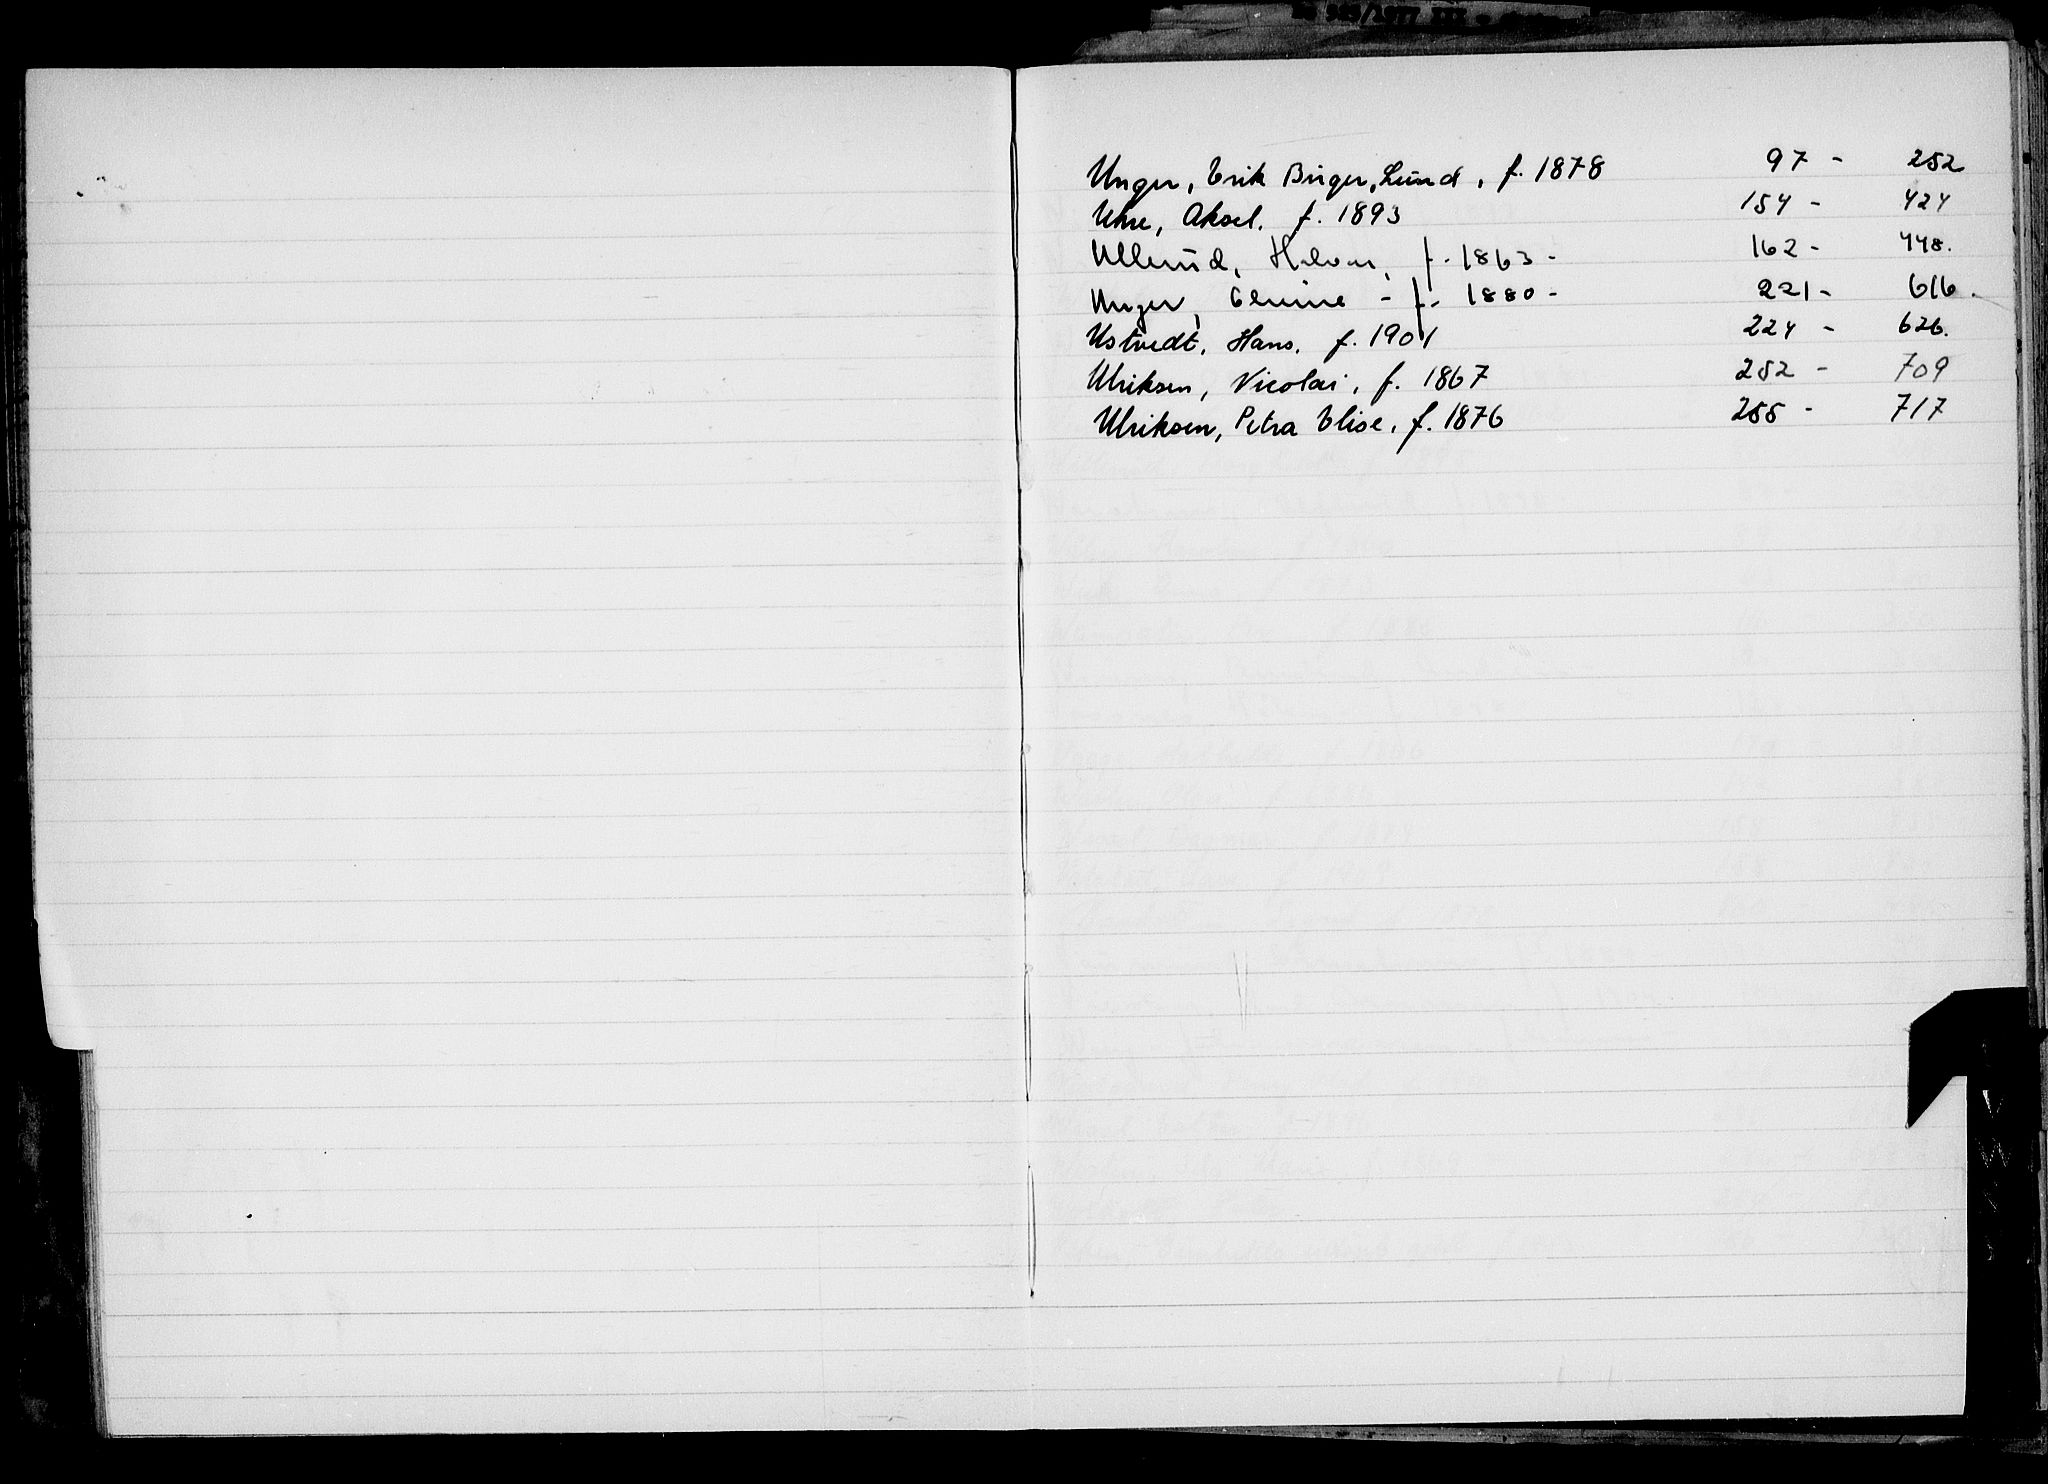 Unger, Erik Birger, Lund, f. 1878 97 - 252
Uhre, Aksel. f. 1893 154 - 424
Ullerud, Halvor, f. 1863 - 162 - 448.
Unger, - f. 1880 - 221 - 616.
Ustvedt, Hans. f. 1901 224 - 626.
Ulriksen, Nicolai, f. 1867 252 - 709
Ulriksen, Petra Elise, f. 1876 255 - 717
V
W